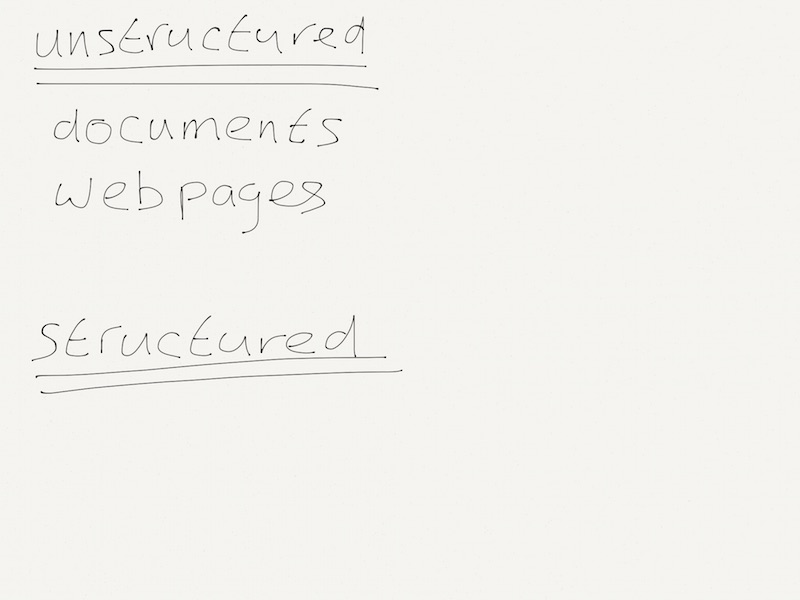 unstructured
documents
web pages
structured